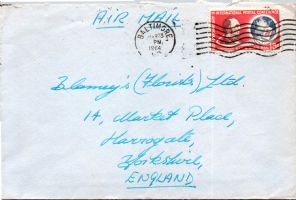 AIR MAIL
BALTIMORE
PM
1964
INTERNATIONAL POSTAL CONFERENCE
15c
Blamey's (Florists) Ltd.
14, Market Place,
Harrogate,
Yorkshire,
ENGLAND